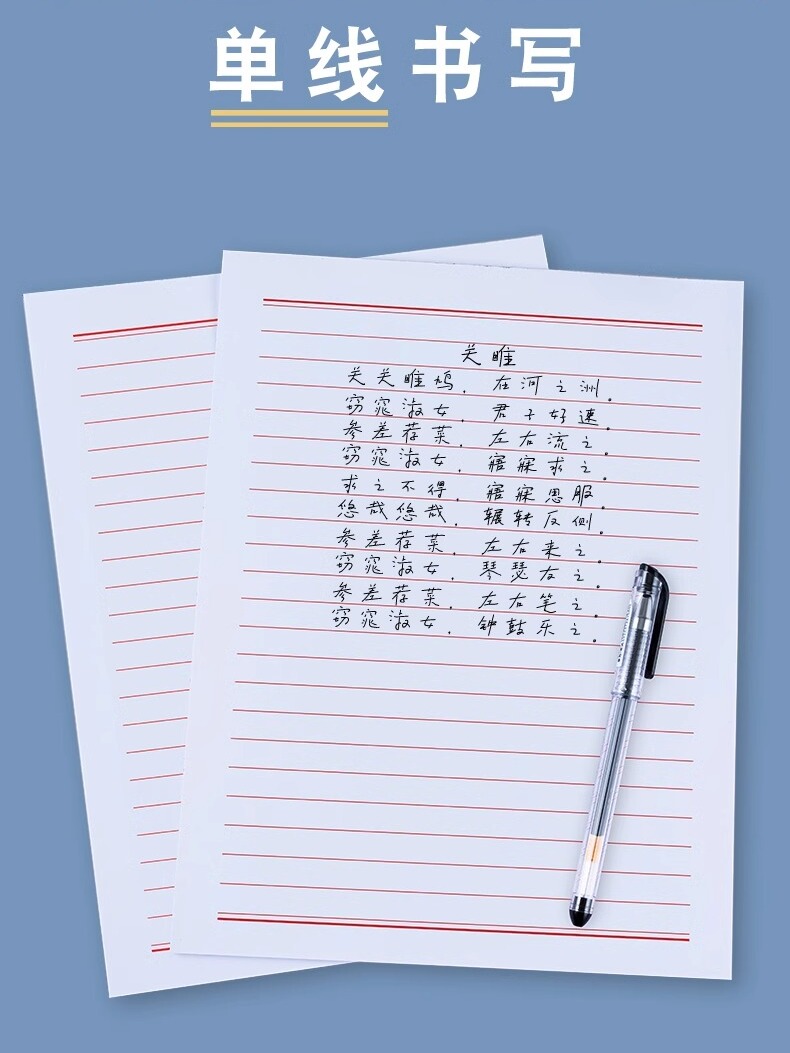 单线书写
关雎
关关雎鸠，在河之洲。
窈窕淑女，君子好逑。
参差荇菜，左右流之。
窈窕淑女，寤寐求之。
求之不得，寤寐思服。
悠哉悠哉，辗转反侧。
参差荇菜，左右来之。
窈窕淑女，琴瑟友之。
参差荇菜，左右笔之。
窈窕淑女，钟鼓乐之。